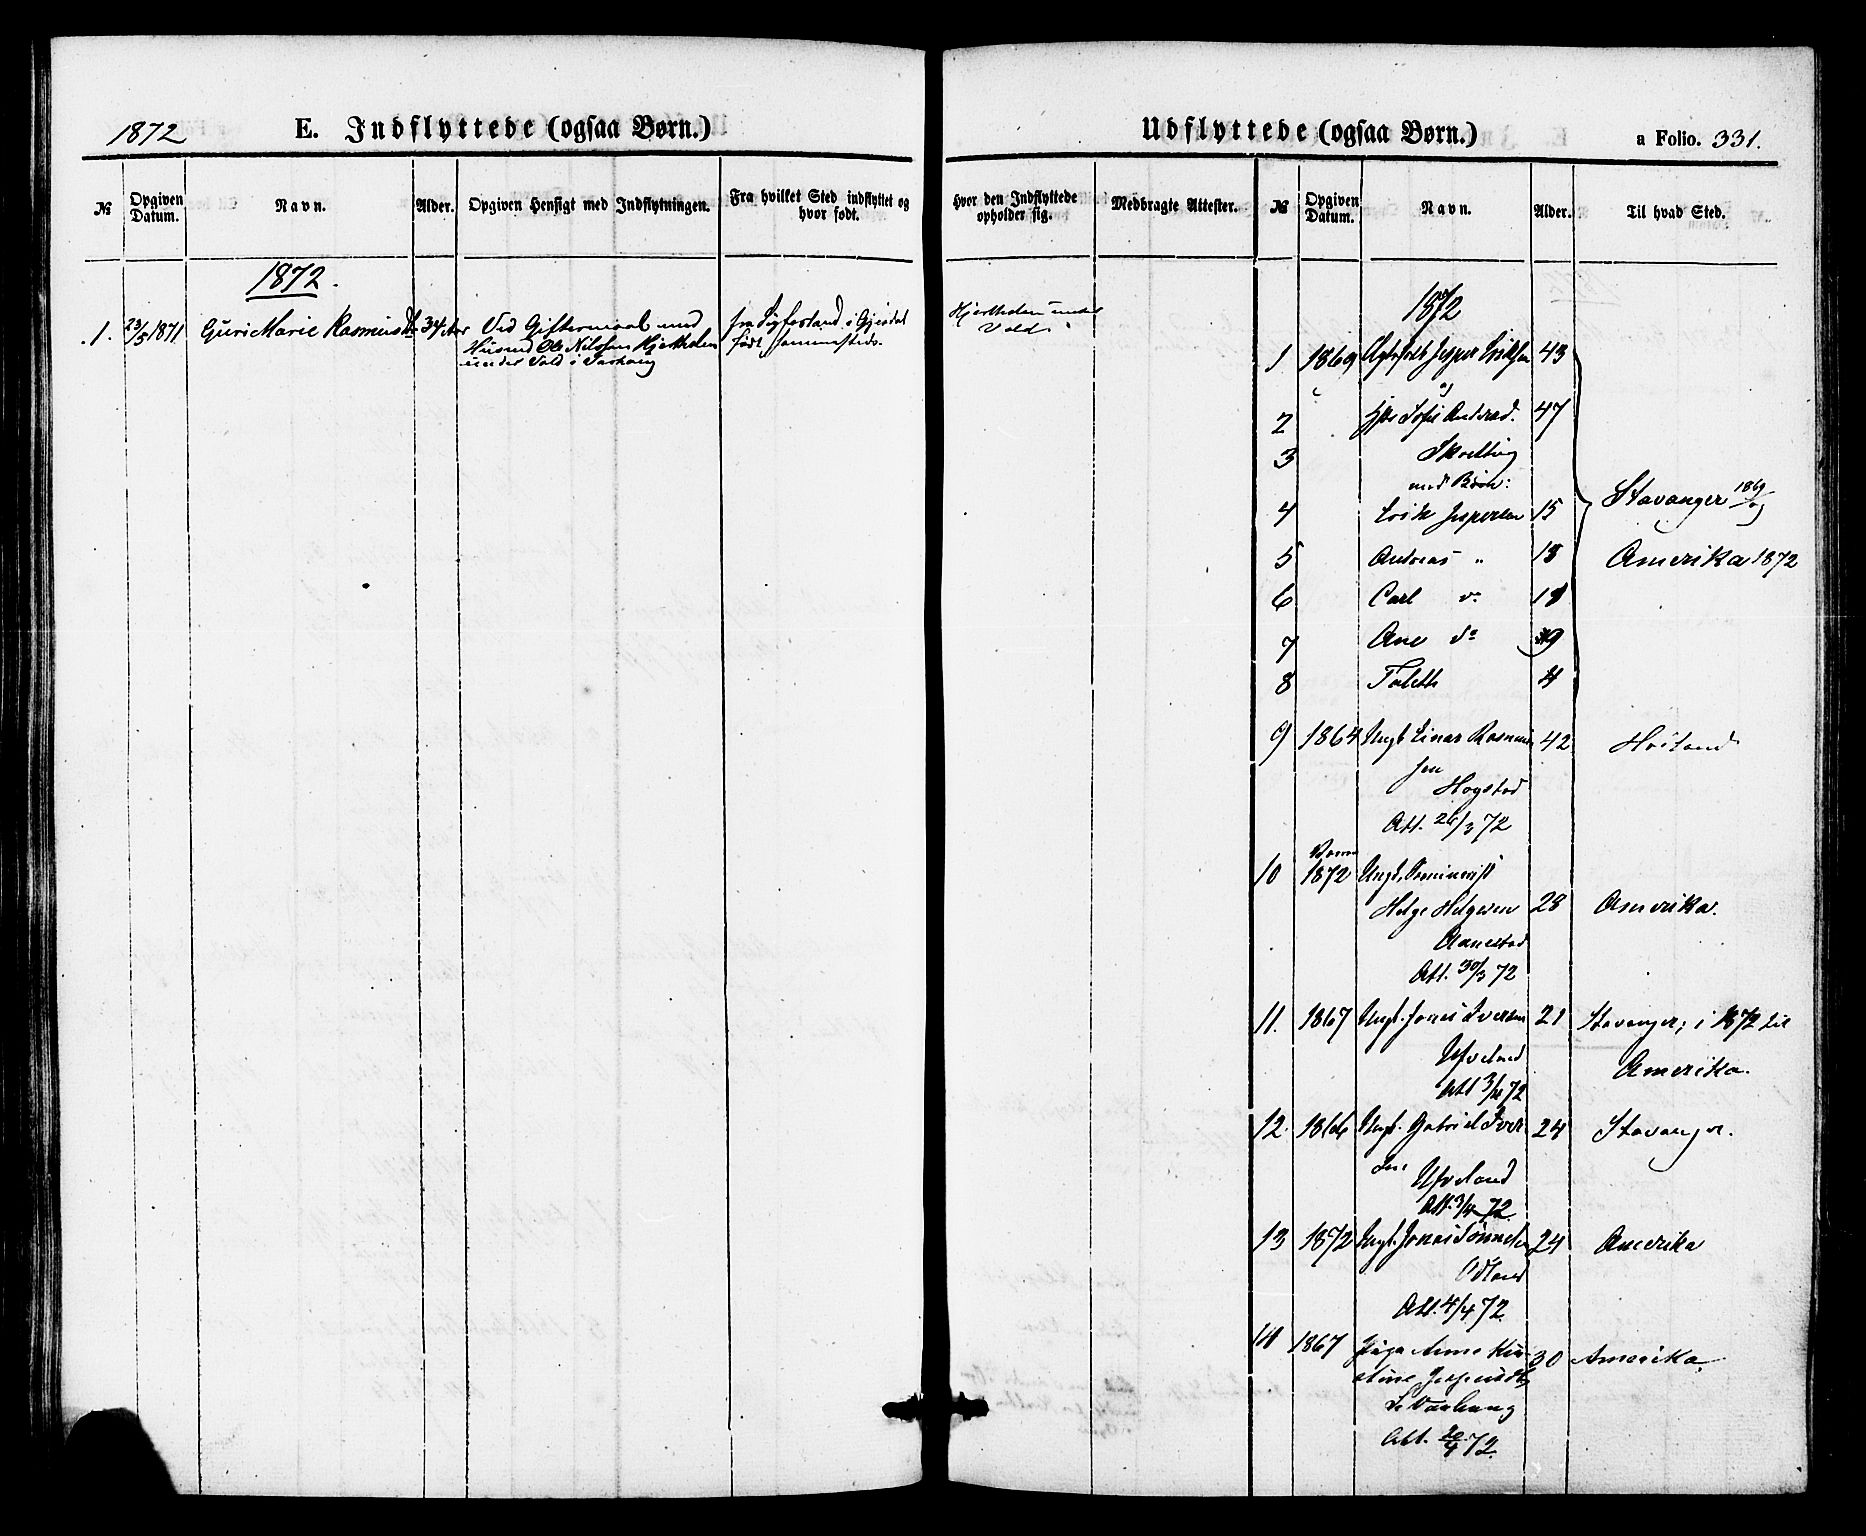 1872
E. Indflyttede (ogsaa Børn.)
№
Opgiven Datum.
Navn.
Alder.
Opgiven Hensigt med Indflytningen.
Fra hvilket Sted indflyttet og hvor født.
1872.
1. 23/5 1871 Guri Marie Rasmusd. 34 Aar Ved Giftermaal med
Husmd Ole Nilssen Hjertholen
under Vold i
fra i Gjesdal
født sammesteds.
Udflyttede (ogsaa Børn.)
a Folio. 331.
Hvor den Indflyttede opholder sig.
Medbragte Attester.
№
Opgiven Datum.
Navn.
Alder.
Til hvad Sted.
Hjertholen under
Vold
1872
1 1869 Jesper Eriksen 43
og
2 Sofie 47
3
med Børn:
4 Erik Jespersen 15
Stavanger 1869 og
5 Andreas " 13
Amerika 1872
6 Carl do
7 Ane do 9
8 Taleth 4
9 1864 Ungk. Einar Rasmus 42
sen
Hogstad
Att. 26/3 72
10 1872 Ungk. Seminarist
Helge Helgesen 28 Amerika.
Aanestad
Att. 30/3 72
11. 1867 Ungk. Jonas Iversen 21 Stavanger; i 1872 til
Amerika.
Att 3/4 72
12. 1866 Ungk. Gabriel Iver 24 Stavanger.
sen
Att. 3/4 72.
13 1872 Ungk. Jonas Tønnesen 24 Amerika
Odland
Att. 4/4 72.
14 1867 Pige Anne Kir-
stine Jespersdtr 30 Amerika.
Att. 20/4 72.